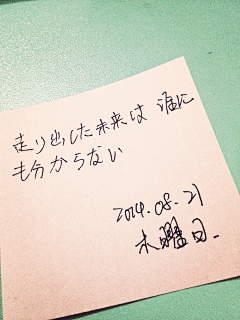 走り出した未来は 誰に
も分からない
2014.08.21
木曜日.